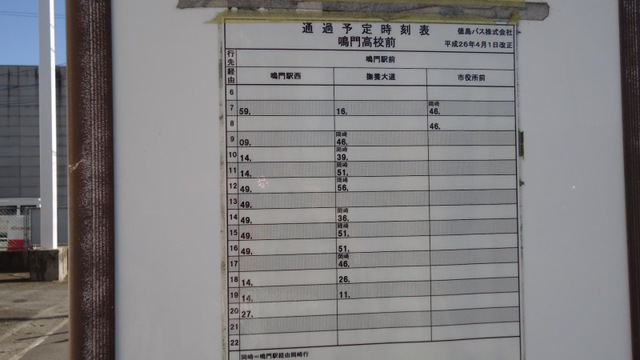 通過予定時刻表
徳島バス株式会社
鳴門高校前
平成26年4月1日改正
行先 鳴門駅前
経由 鳴門駅西 撫養大道 市役所前
6
岡崎
7 59. 16. 46.
8 46.
岡崎
9 09. 46.
岡崎
10 14. 39.
岡崎
11 14. 51.
岡崎
12 49. 56.
13 49.
岡崎
14 49. 36.
岡崎
15 49. 51.
16 49. 51.
岡崎
17 46.
18 14. 26.
19 14. 11.
20 27.
21
22
岡崎=鳴門駅経由岡崎行